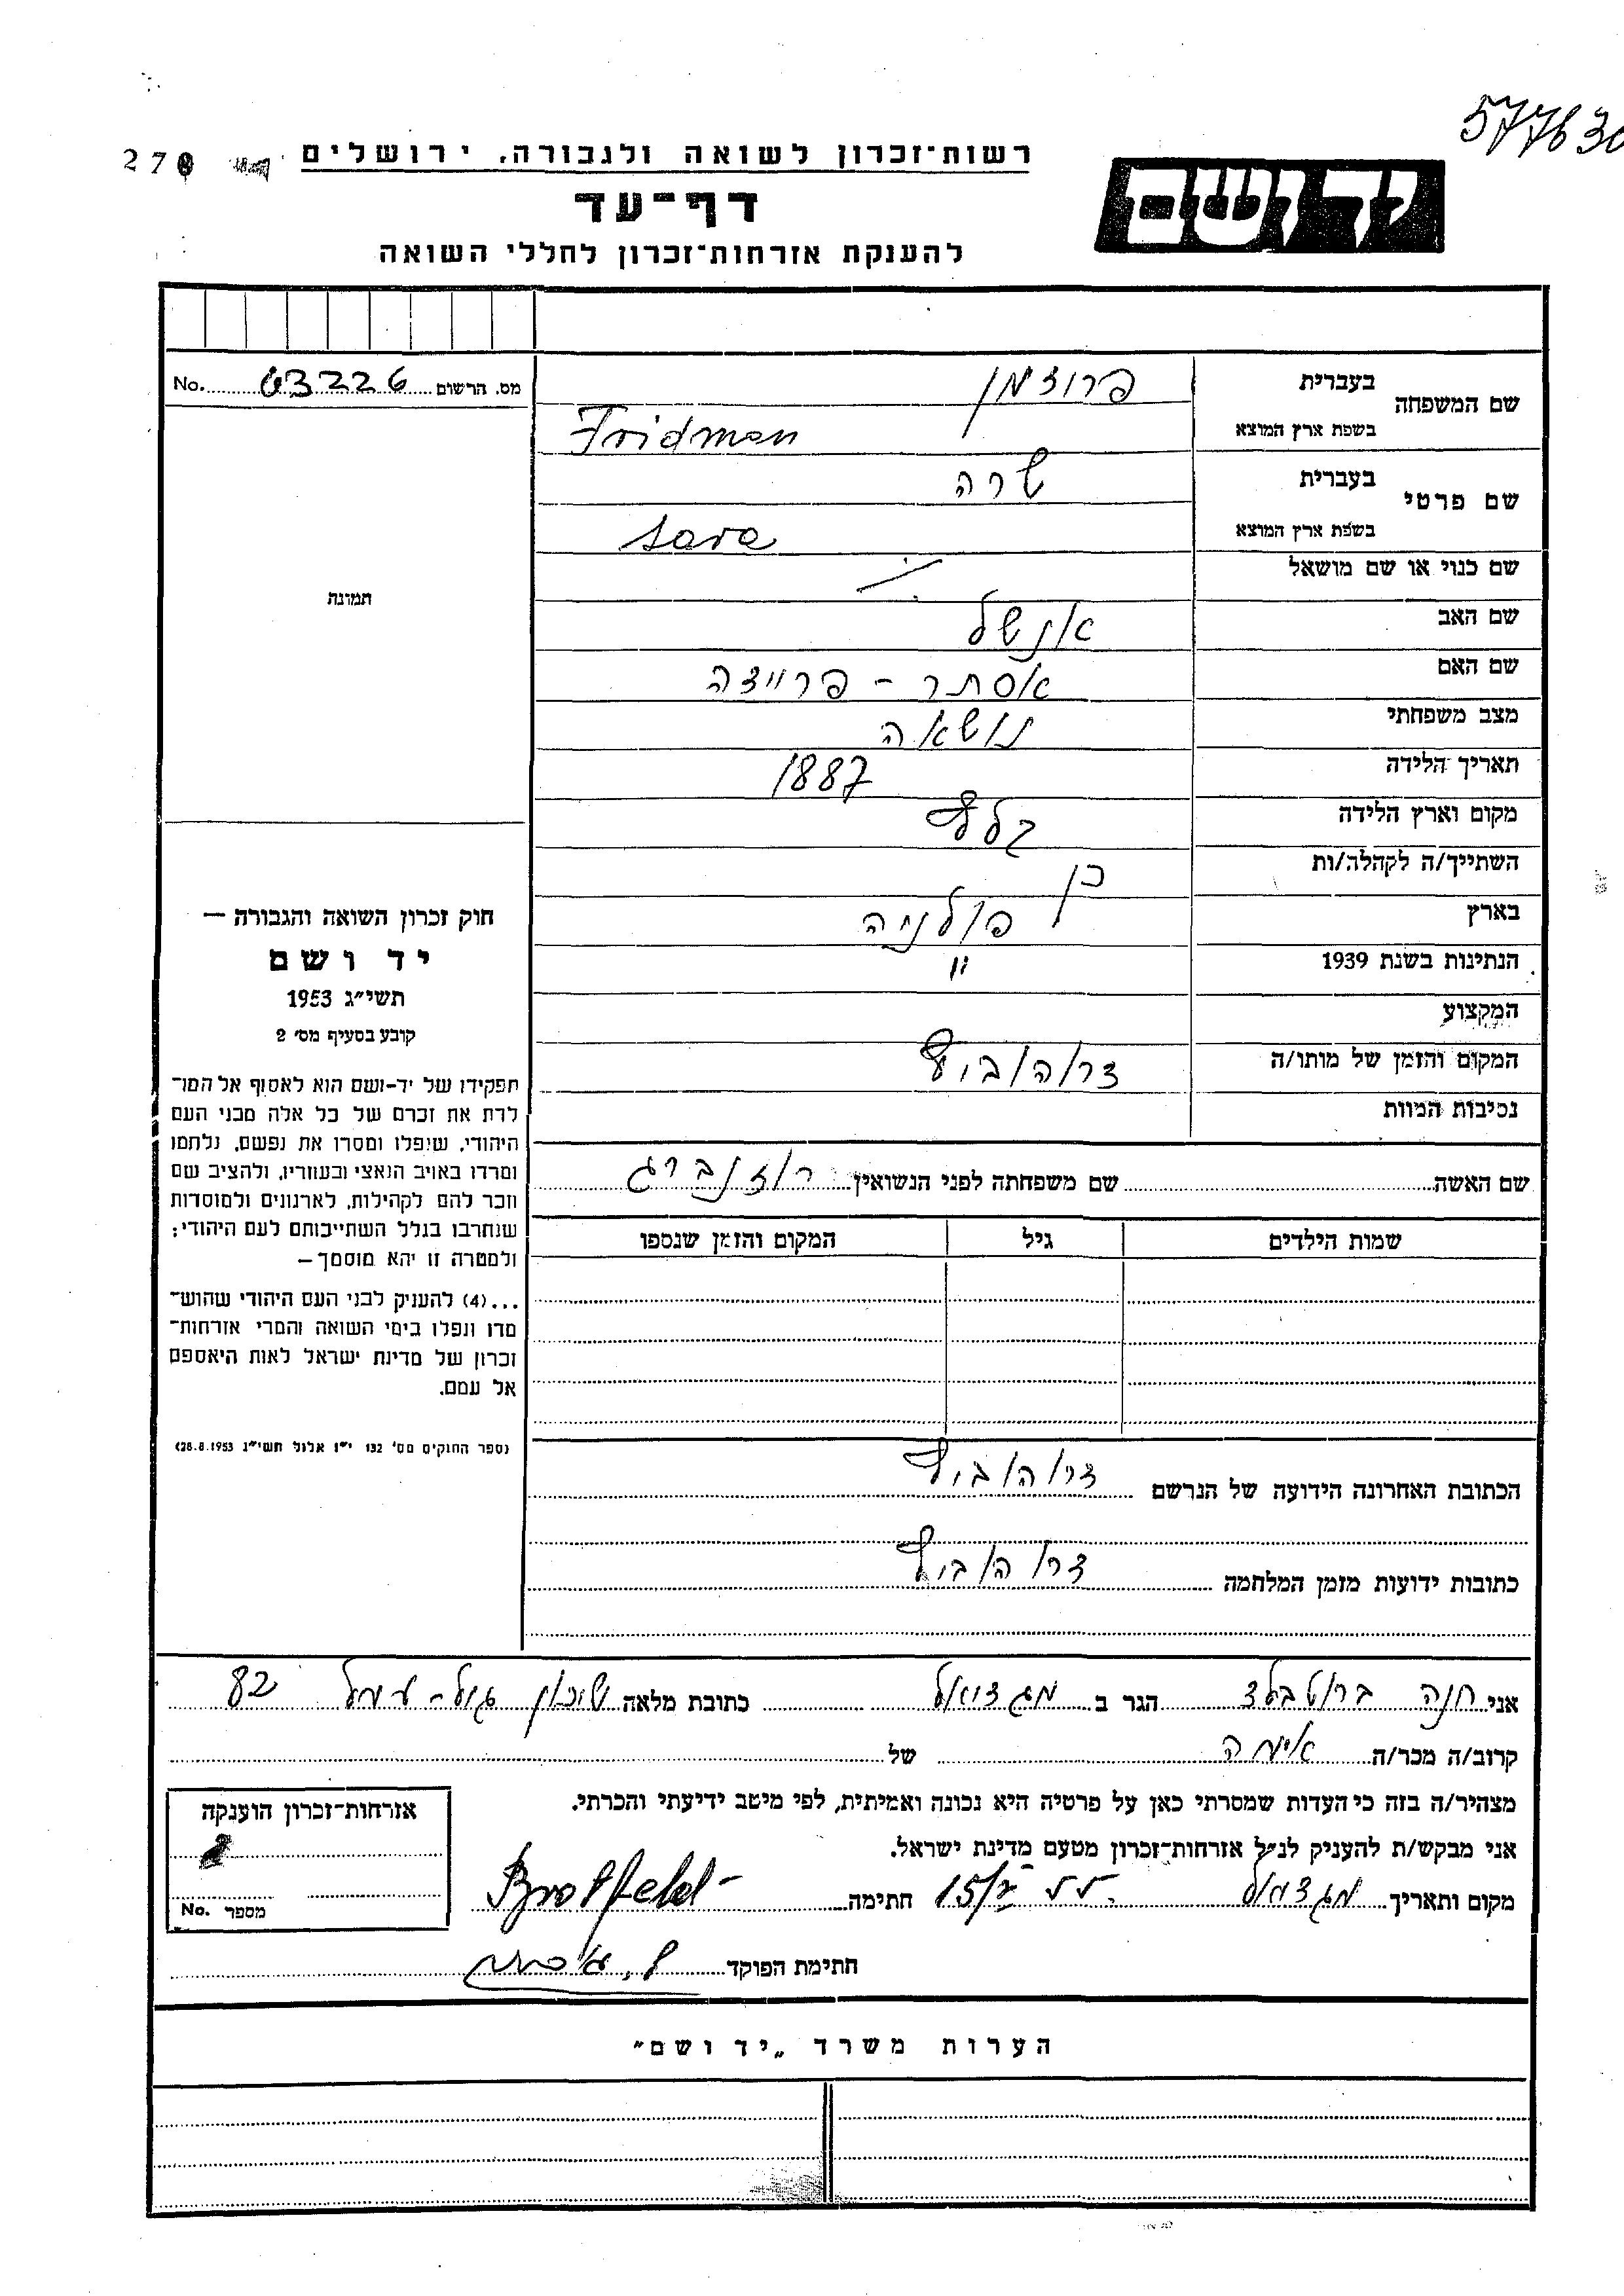 577630
278
רשות-זכרון לשואה ולגבורה, ירושלים
יד ושם
דף-עד
להענקת אזרחות-זכרון לחללי השואה
שם המשפחה בעברית פרידמן
בשפת ארץ המוצא Fridman
שם פרטי בעברית שרה
בשפת ארץ המוצא Sara
שם כנוי או שם מושאל
שם האב אנשל
שם האם אסתר -
מצב משפחתי נשואה
תאריך הלידה 1887
מקום וארץ הלידה בלז
השתייך/ה לקהלה/ות כן
בארץ פולניה
הנתינות בשנת 1939 "
המקצוע
המקום והזמן של מותו/ה דרוהוביץ
נסיבות המוות
שם האשה שם משפחתה לפני הנשואין רוזנברג
שמות הילדים גיל המקום והזמן שנספו
הכתובת האחרונה הידועה של הנרשם דרוהוביץ
כתובות ידועות מזמן המלחמה דרוהוביץ
מס. הרשום 63226 No.
תמונה
חוק זכרון השואה והגבורה —
יד ושם
תשי"ג 1953
קובע בסעיף מס' 2
תפקידו של יד-ושם הוא לאסוף אל המו־
לדת את זכרם של כל אלה מבני העם
היהודי, שנפלו ומסרו את נפשם, נלחמו
ומרדו באויב הנאצי ובעוזריו, ולהציב שם
וזכר להם לקהילות, לארגונים ולמוסדות
שנחרבו בגלל השתייכותם לעם היהודי;
ולמטרה זו יהא מוסמך —
...(4) להעניק לבני העם היהודי שהוש־
מדו ונפלו בימי השואה והמרי אזרחות־
זכרון של מדינת ישראל לאות היאספם
אל עמם.
(ספר החוקים מס' 132 י"ז אלול תשי"ג 28.8.1953)
אני חנה ברוטפלד הגר ב מגדיאל כתובת מלאה שיכון גיל-עמל 82
קרוב/ה מכר/ה אימה של
מצהיר/ה בזה כי העדות שמסרתי כאן על פרטיה היא נכונה ואמיתית, לפי מיטב ידיעתי והכרתי.
אני מבקש/ת להעניק לנ"ל אזרחות-זכרון מטעם מדינת ישראל.
מקום ותאריך מגדיאל חתימה Brotfeld
חתימת הפוקד
אזרחות-זכרון הוענקה
מספר No.
הערות משרד „יד ושם"